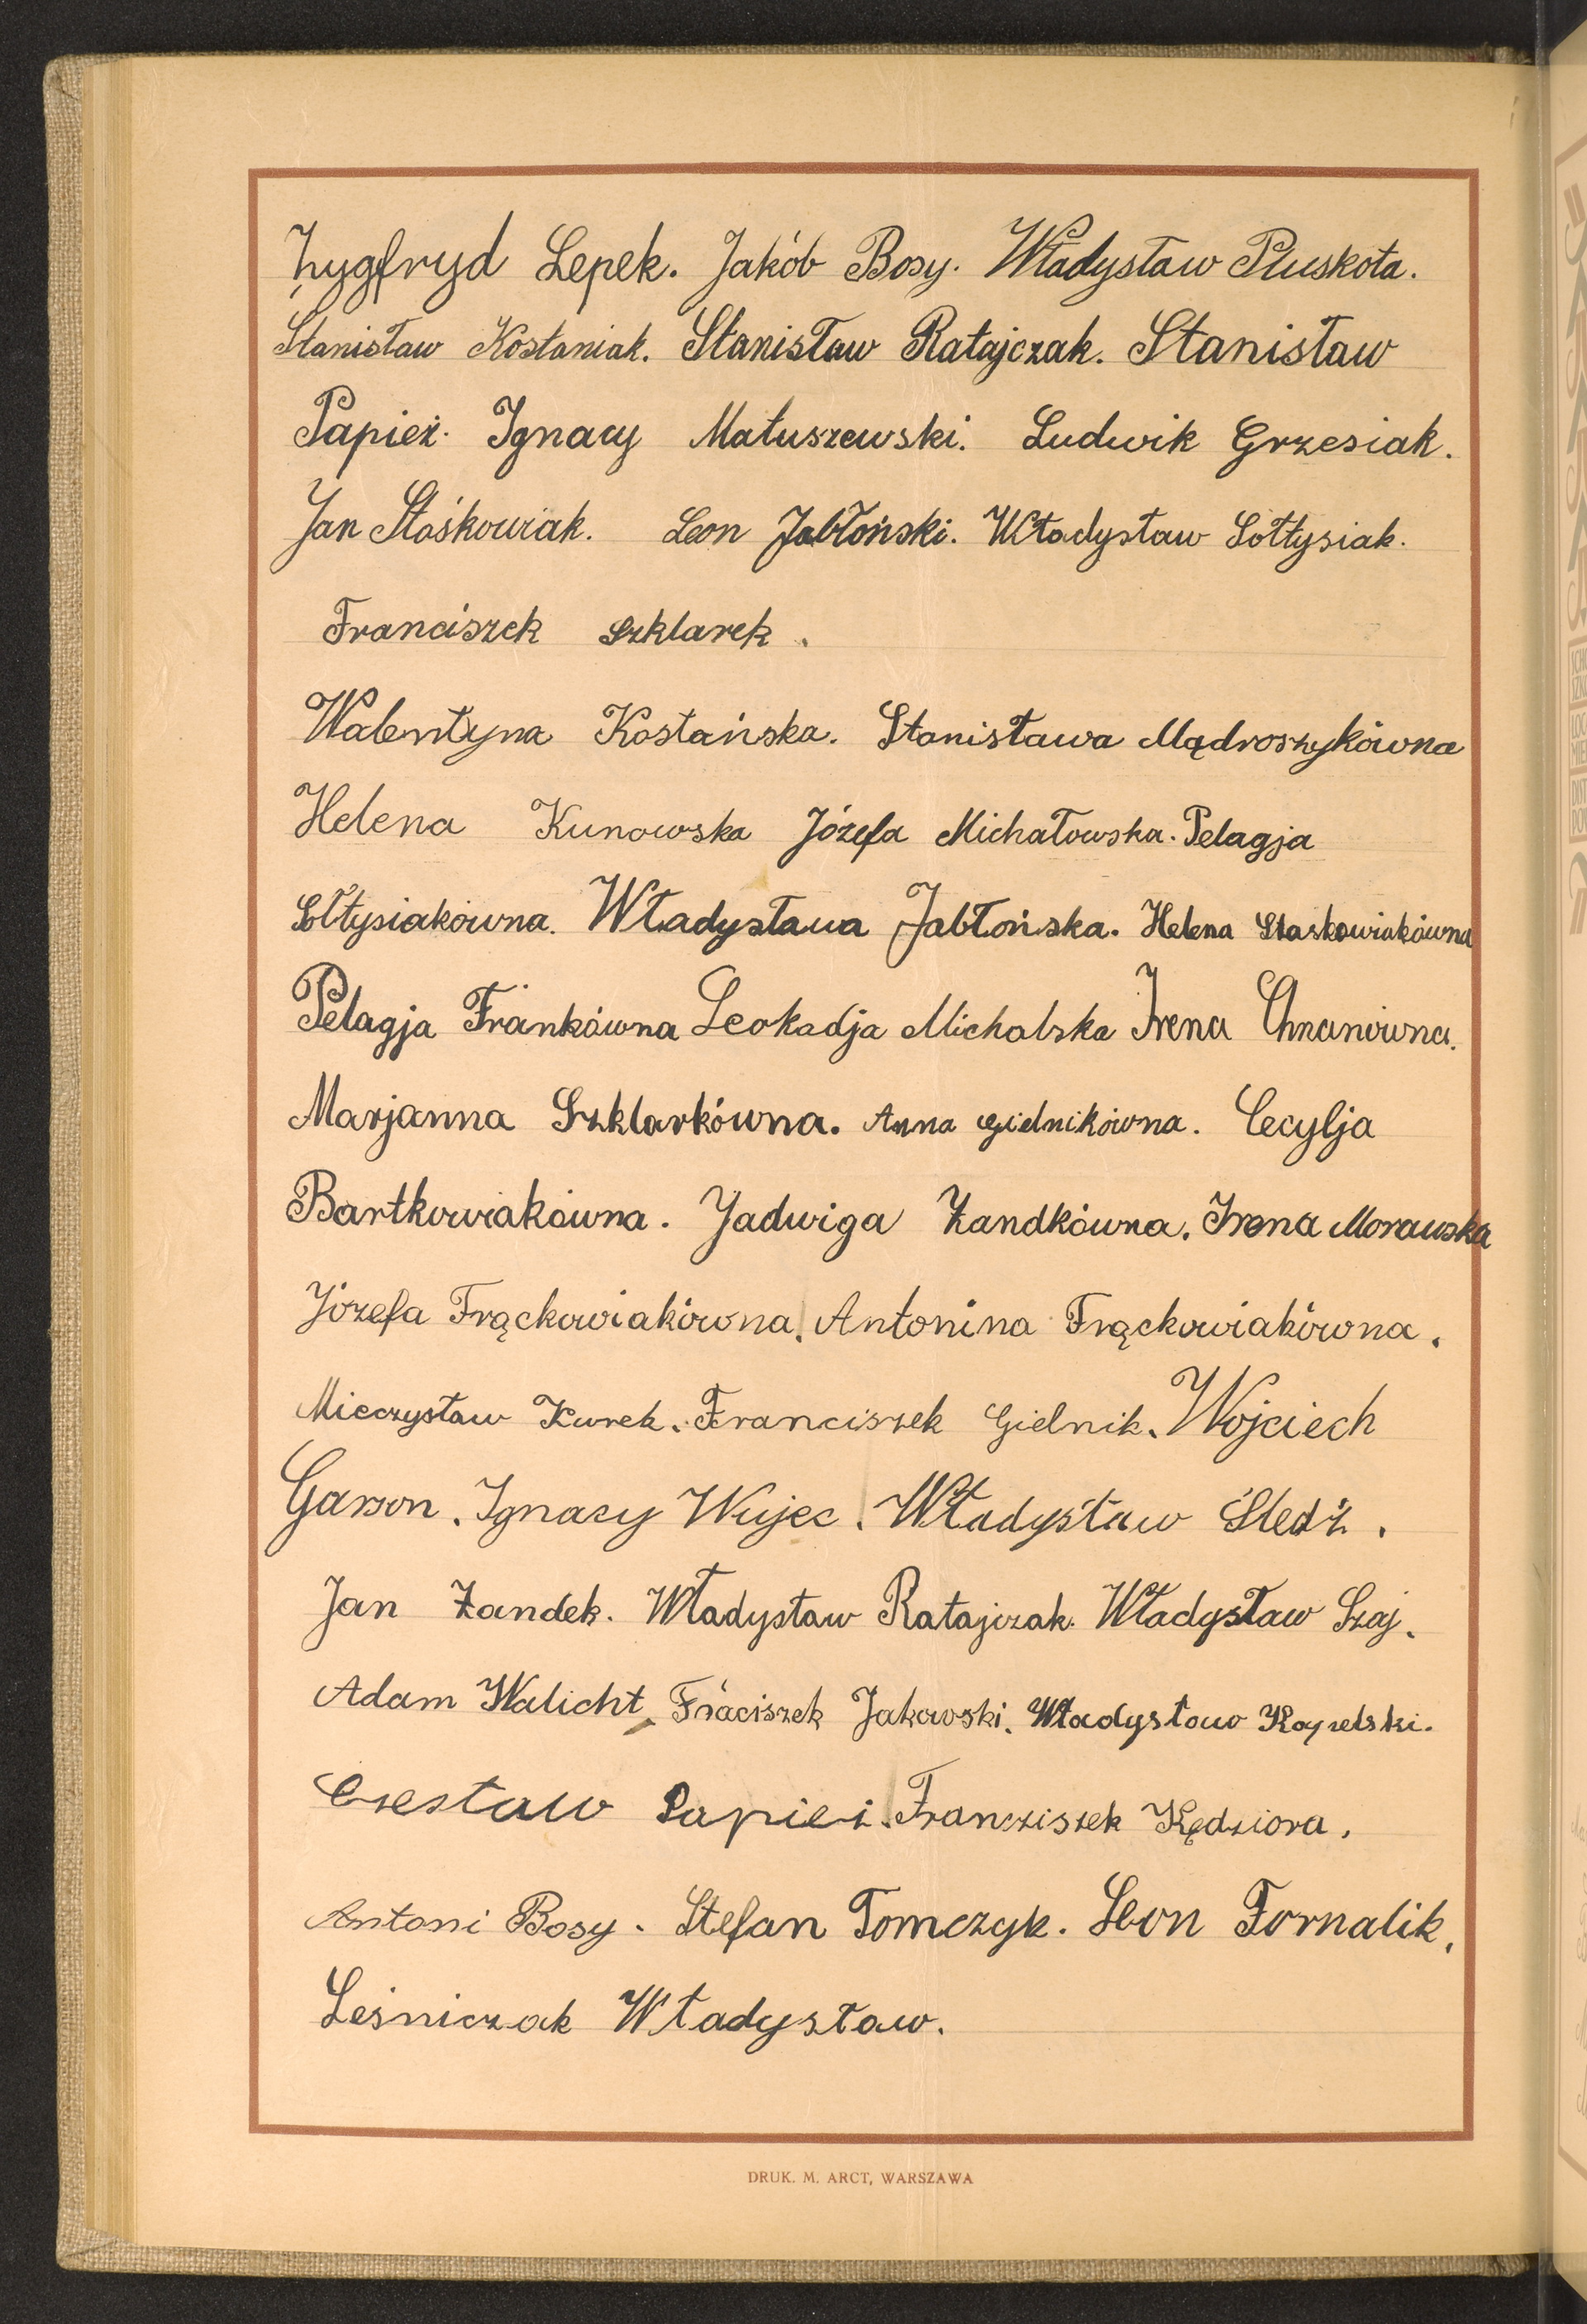 Zygfryd Lepek. Jakób Bosy. Władysław Pluskota.
Stanisław Kostaniak. Stanisław Ratajczak. Stanisław
Papież. Ignacy Matuszewski. Ludwik Grzesiak.
Jan Staśkowiak. Leon Jabłoński. Władysław Sołtysiak.
Franciszek Szklarek.
Walentyna Kostańska. Stanisława Mądroszykówna
Helena Kunowska Józefa Michałowska. Pelagja
Sołtysiakówna. Władysława Jabłońska. Helena Staskowiakówna
Pelagja Frankówna Leokadja Michalska Irena
Marjanna Szklarkówna. Anna Gielnikówna. Cecylja
Bartkowiakówna. Jadwiga Żandkówna. Irena Morawska
Józefa Frąckowiakówna. Antonina Frąckowiakówna.
Mieczysław Kurek. Franciszek Gielnik. Wojciech
Garson. Ignacy Wujec. Władysław Śledź.
Jan Żandek. Władysław Ratajczak. Władysław Szaj.
Adam Walicht, Fraciszek Jakowski. Władysław
Czesław Papież. Francziszek Kędziora.
Antoni Bosy. Stefan Tomczyk. Leon Fornalik.
Leśniczak Władysław.
DRUK. M. ARCT, WARSZAWA